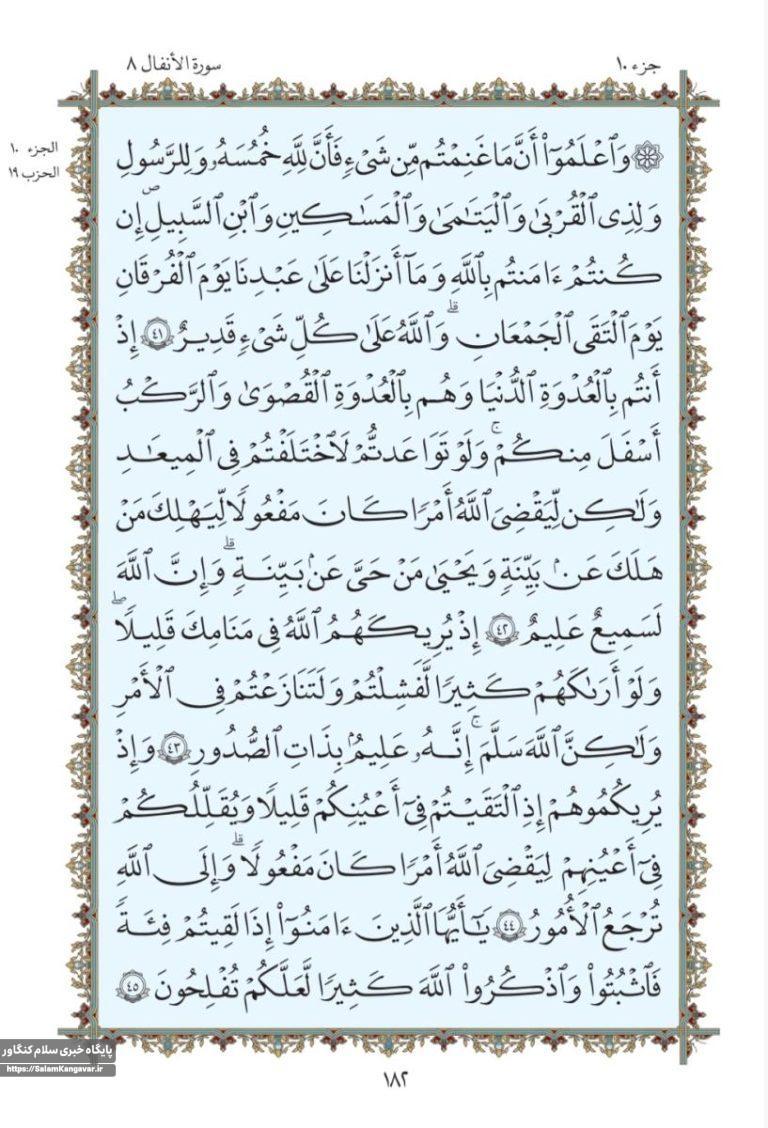 جزء ١٠
سورة الأنفال ٨
الجزء ١٠
الحزب ١٩
وَٱعْلَمُوٓا۟ أَنَّمَا غَنِمْتُم مِّن شَىْءٍ فَأَنَّ لِلَّهِ خُمُسَهُۥ وَلِلرَّسُولِ
وَلِذِى ٱلْقُرْبَىٰ وَٱلْيَتَـٰمَىٰ وَٱلْمَسَـٰكِينِ وَٱبْنِ ٱلسَّبِيلِ إِن
كُنتُمْ ءَامَنتُم بِٱللَّهِ وَمَآ أَنزَلْنَا عَلَىٰ عَبْدِنَا يَوْمَ ٱلْفُرْقَانِ
يَوْمَ ٱلْتَقَى ٱلْجَمْعَانِ ۗ وَٱللَّهُ عَلَىٰ كُلِّ شَىْءٍ قَدِيرٌ ٤١ إِذْ
أَنتُم بِٱلْعُدْوَةِ ٱلدُّنْيَا وَهُم بِٱلْعُدْوَةِ ٱلْقُصْوَىٰ وَٱلرَّكْبُ
أَسْفَلَ مِنكُمْ ۚ وَلَوْ تَوَاعَدتُّمْ لَٱخْتَلَفْتُمْ فِى ٱلْمِيعَـٰدِ
وَلَـٰكِن لِّيَقْضِىَ ٱللَّهُ أَمْرًا كَانَ مَفْعُولًا لِّيَهْلِكَ مَنْ
هَلَكَ عَنۢ بَيِّنَةٍ وَيَحْيَىٰ مَنْ حَىَّ عَنۢ بَيِّنَةٍ ۗ وَإِنَّ ٱللَّهَ
لَسَمِيعٌ عَلِيمٌ ٤٢ إِذْ يُرِيكَهُمُ ٱللَّهُ فِى مَنَامِكَ قَلِيلًا ۖ
وَلَوْ أَرَىٰكَهُمْ كَثِيرًا لَّفَشِلْتُمْ وَلَتَنَـٰزَعْتُمْ فِى ٱلْأَمْرِ
وَلَـٰكِنَّ ٱللَّهَ سَلَّمَ ۚ إِنَّهُۥ عَلِيمٌۢ بِذَاتِ ٱلصُّدُورِ ٤٣ وَإِذْ
يُرِيكُمُوهُمْ إِذِ ٱلْتَقَيْتُمْ فِىٓ أَعْيُنِكُمْ قَلِيلًا وَيُقَلِّلُكُمْ
فِىٓ أَعْيُنِهِمْ لِيَقْضِىَ ٱللَّهُ أَمْرًا كَانَ مَفْعُولًا ۗ وَإِلَى ٱللَّهِ
تُرْجَعُ ٱلْأُمُورُ ٤٤ يَـٰٓأَيُّهَا ٱلَّذِينَ ءَامَنُوٓا۟ إِذَا لَقِيتُمْ فِئَةً
فَٱثْبُتُوا۟ وَٱذْكُرُوا۟ ٱللَّهَ كَثِيرًا لَّعَلَّكُمْ تُفْلِحُونَ ٤٥
پایگاه خبری سلام کنگاور
https://SalamKangavar.ir
١٨٢